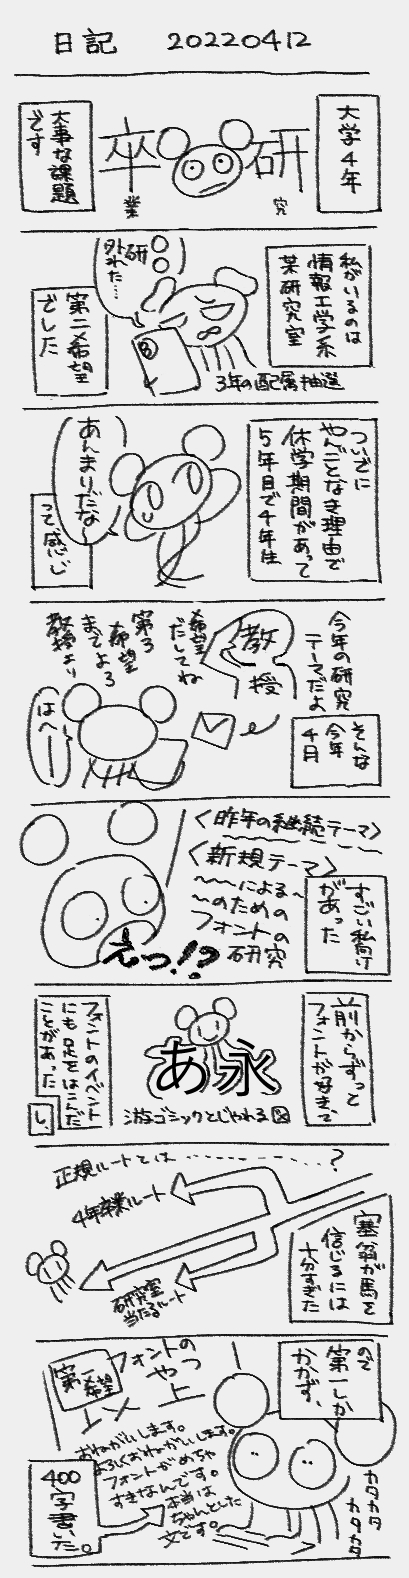 日記 20220412
大学4年
卒研
業
究
大事な課題
です
私がいるのは
情報工学系
某研究室
研
外れた…
3年の配属抽選
第二希望
でした
ついでに
やんごとなき理由で
休学期間があって
5年目で4年生
あんまりだな〜
って感じ
今年の研究
テーマだよ
教授
希望
だしてね
第3
希望
までよろ
教授より
そんな
今年
4月
はへ〜
〈昨年の継続テーマ〉
〈新規テーマ〉
〜〜による〜
〜のための
フォントの
研究
すごい私向け
があった
えっ!?
前からずっと
フォントが好きで
あ永
游ゴシックとじゃれる図
フォントのイベント
にも足をはこんだ
ことがあった
し、
正規ルートとは…………?
4年卒業ルート
研究室
当たるルート
塞翁が馬を
信じるには
十分すぎた
ので
第一しか
かかず、
第一
希望
フォントの
やつ
一択
おねがいします。
よろしくおねがいします。
フォントがめちゃ
すきなんです。
本当は
ちゃんとした
文です。
カタカタ
カタカタ
400
字書いた。